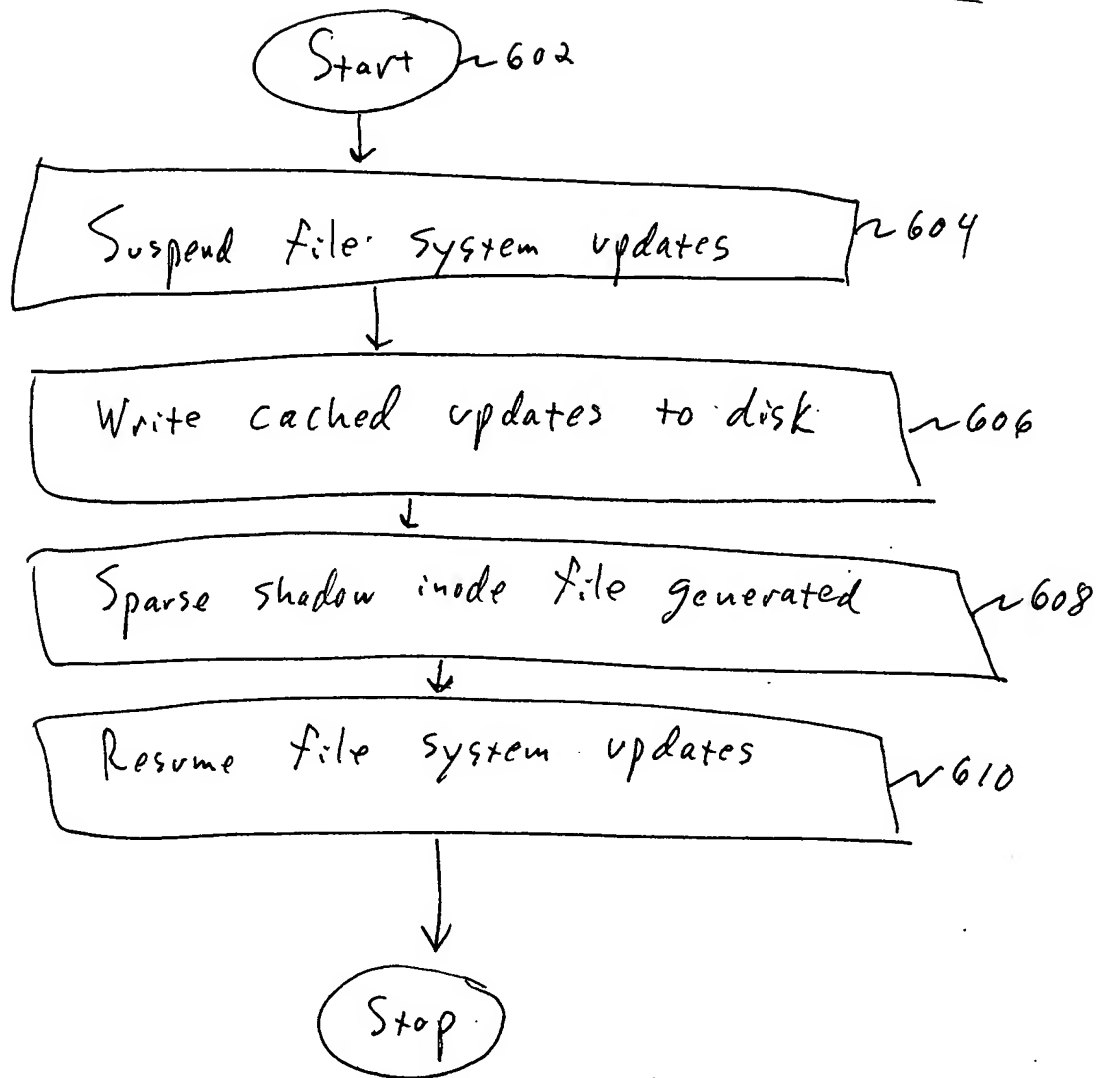 Start 602
Suspend file system updates 604
Write cached updates to disk 606
Sparse shadow inode file generated 608
Resume file system updates 610
Stop